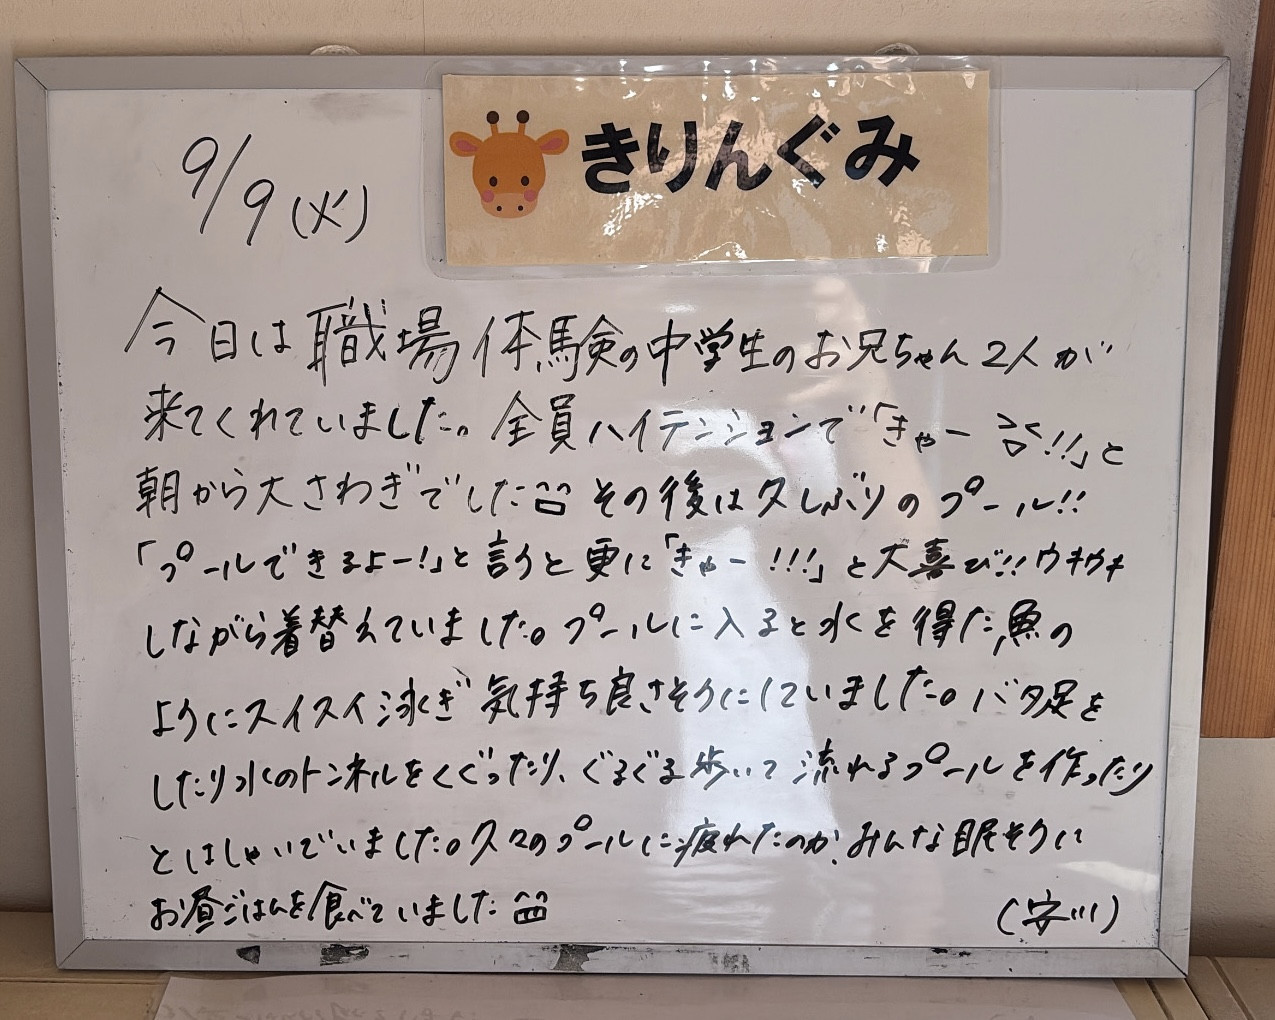 きりんぐみ
9/9(火)
今日は職場体験の中学生のお兄ちゃん2人が
来てくれていました。全員ハイテンションで「きゃー!!」と
朝から大さわぎでした その後は久しぶりのプール!!
「プールできるよー!」と言うと更に「きゃー!!!」と大喜び!!ウキウキ
しながら着替えていました。プールに入ると水を得た魚の
ようにスイスイ泳ぎ気持ち良さそうにしていました。バタ足を
したり水のトンネルをくぐったり、ぐるぐる歩いて流れるプールを作ったり
とはしゃいでいました。久々のプールに疲れたのか、みんな眠そうに
お昼ごはんを食べていました
(安川)